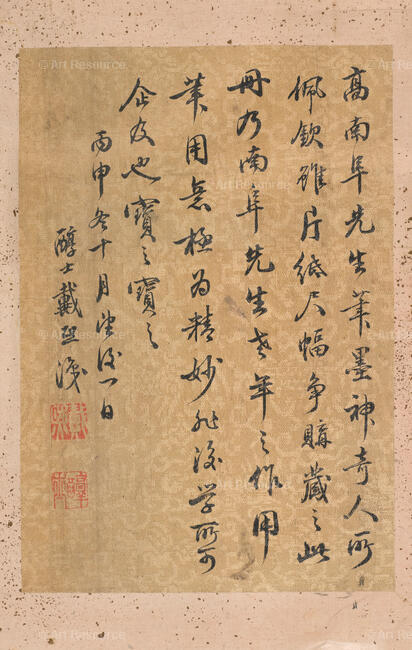 高南阜先生筆墨神奇人所
佩欽雖片紙尺幅爭購藏之此
冊乃南阜先生老年之作用
筆用意極為精妙非後學所可
企及也寶之寶之
丙申冬十月望後一日
醇士戴熙識
© Art Resource